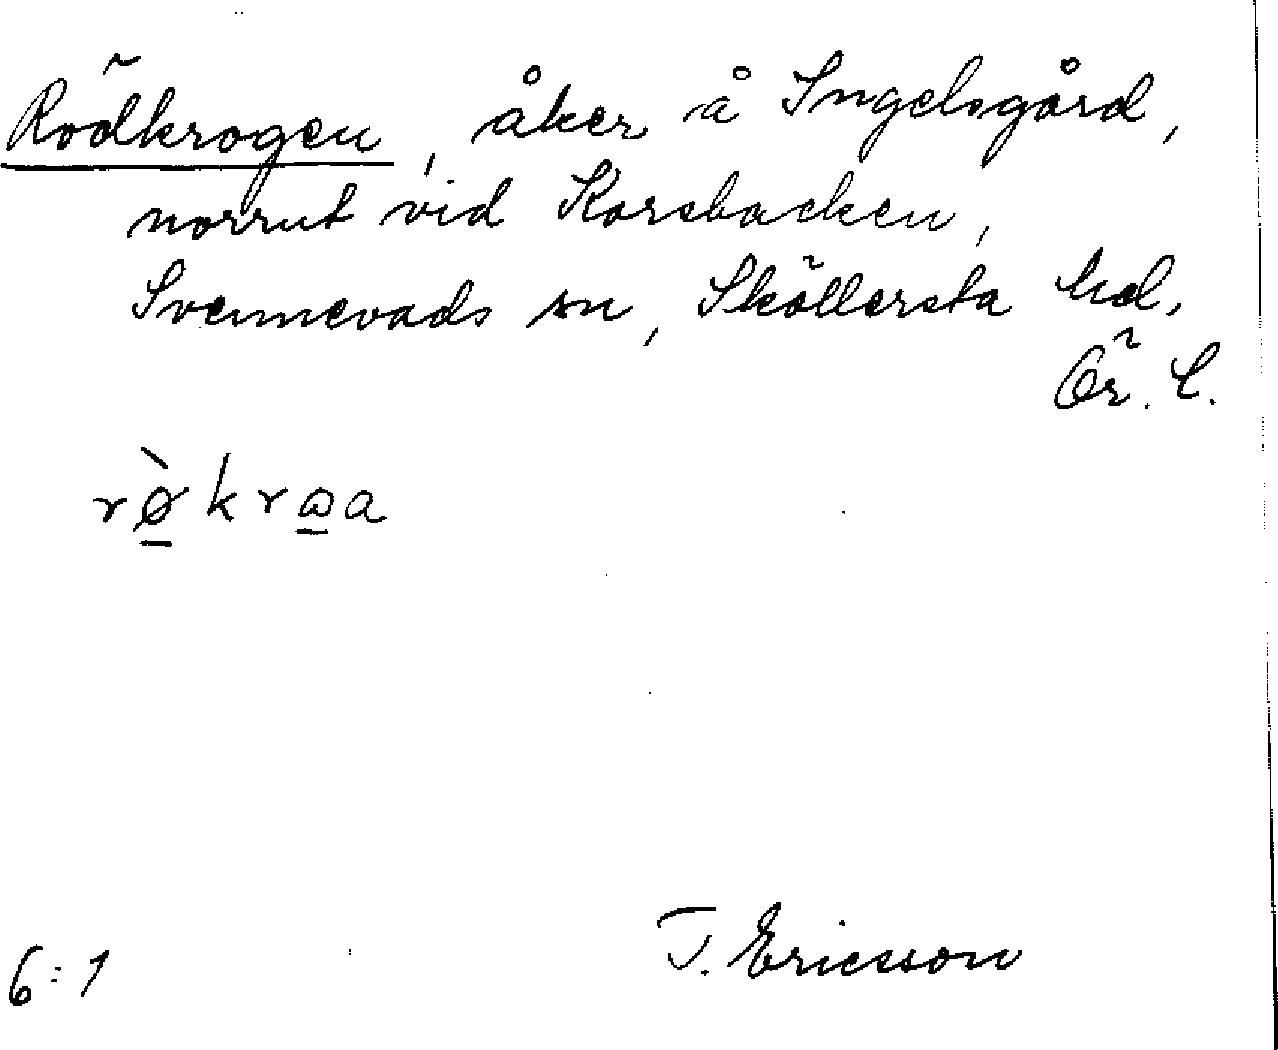 Rödkrogen, åker å Ingelsgård,
norrut vid Korsbacken,
Svennevads sn, Sköllersta hd,
Ör. l.
rø̲̀krꞷ̲a
6:1
T. Ericsson